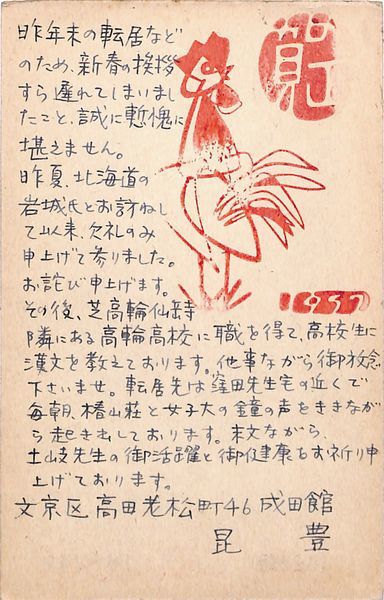 賀
昨年末の転居など
のため、新春の挨拶
すら遅れてしまいまし
たこと、誠に慙愧に
堪えません。
昨夏、北海道の
岩城氏とお訪ねし
て以来、欠礼のみ
申上げて参りました。
お詫び申上げます。
1957
その後、芝高輪仙岳寺
隣にある高輪高校に職を得て、高校生に
漢文を教えております。他事ながら御放念
下さいませ。転居先は窪田先生宅の近くで
毎朝、椿山荘と女子大の鐘の声をききなが
ら起き出しております。末文ながら、
土岐先生の御活躍と御健康をお祈り申
上げております。
文京区高田老松町46 成田館
昆 豊